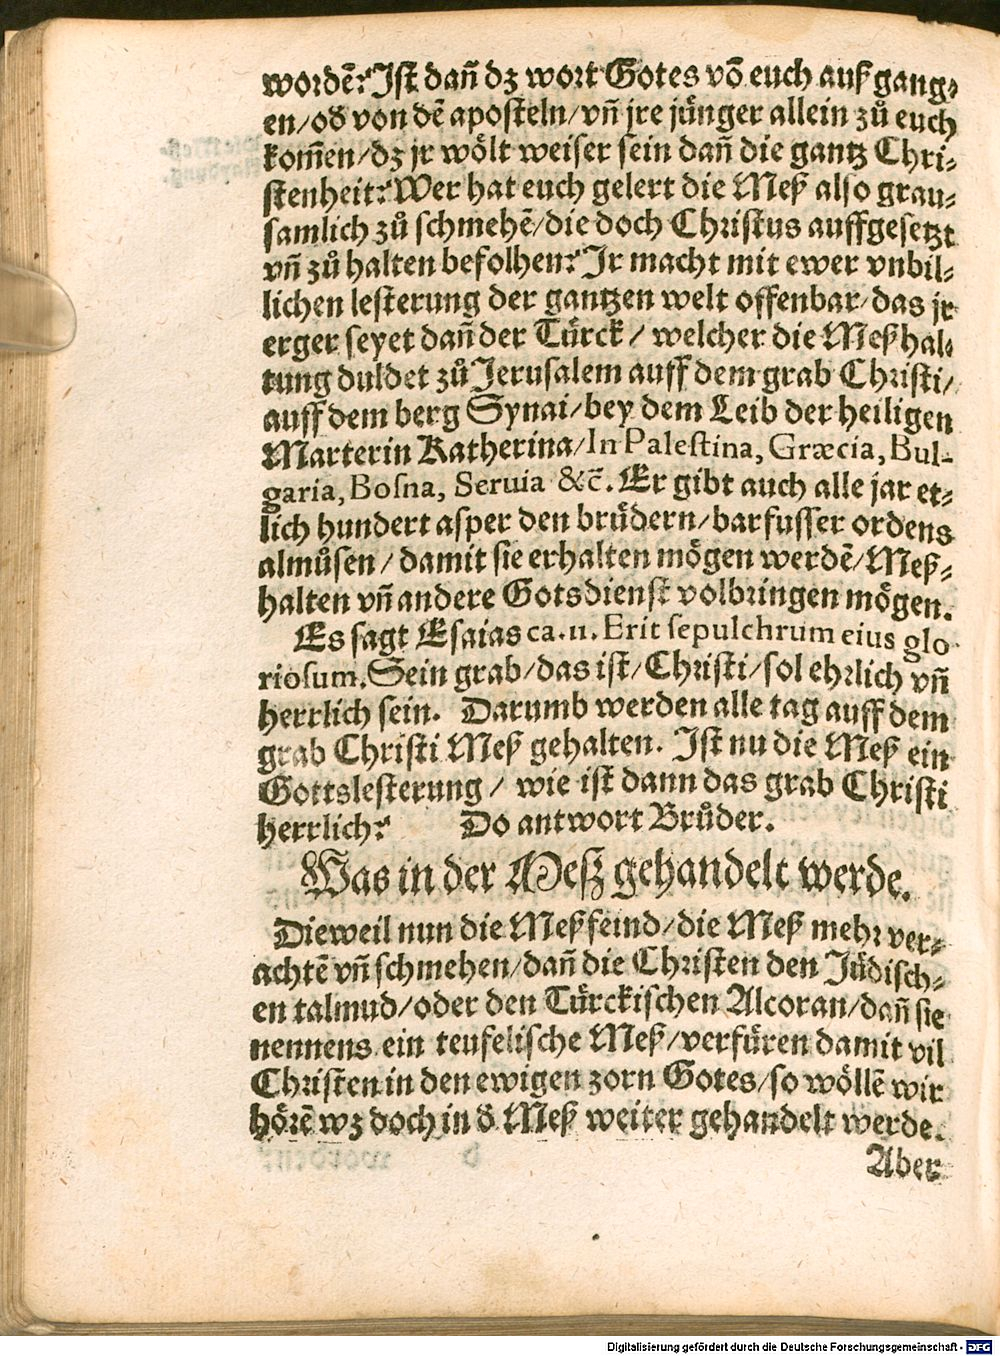 wordē? Iſt dañ dz wort Gotes võ euch auß gang⸗
en/od̄ von dē apoſteln/vñ jre jünger allein zů euch
kom̃en/dz jr wölt weiſer ſein dañ die gantz Chri⸗
ſtenheit? Wer hat euch gelert die Meß alſo grau⸗
ſamlich zů ſchmehē/die doch Chriſtus auffgeſetzt
vñ zů halten befolhen? Ir macht mit ewer vnbil⸗
lichen leſterung der gantzen welt offenbar/das jr
erger ſeyet dañ der Türck / welcher die Meßhal⸗
tung duldet zů Jeruſalem auff dem grab Chriſti/
auff dem berg Synai/bey dem Leib der heiligen
Marterin Katherina/In Paleſtina, Græcia, Bul-
garia, Boſna, Seruia &c̄. Er gibt auch alle jar et⸗
lich hundert aſper den brüdern/barfuſſer ordens
almůſen / damit ſie erhalten mögen werdē/Meß⸗
halten vñ andere Gotsdienſt volbringen mögen.
Es ſagt Eſaias ca.11. Erit ſepulchrum eius glo-
rioſum. Sein grab/das iſt/Chriſti/ſol ehrlich vñ
herrlich ſein. Darumb werden alle tag auff dem
grab Chriſti Meß gehalten. Iſt nu die Meß ein
Gottsleſterung / wie iſt dann das grab Chriſti
herrlich? Do antwort Brůder.
Was in der Meſz gehandelt werde.
Dieweil nun die Meßfeind/die Meß mehr ver⸗
achtē vñ ſchmehen/dañ die Chriſten den Jüdiſch⸗
en talmud/oder den Türckiſchen Alcoran/dañ ſie
nennens ein teufeliſche Meß/verfüren damit vil
Chriſten in den ewigen zorn Gotes/ſo wöllē wir
hörē wz doch in d̄ Meß weiter gehandelt werde.
Aber
Digitalisierung gefördert durch die Deutsche Forschungsgemeinschaft - DFG